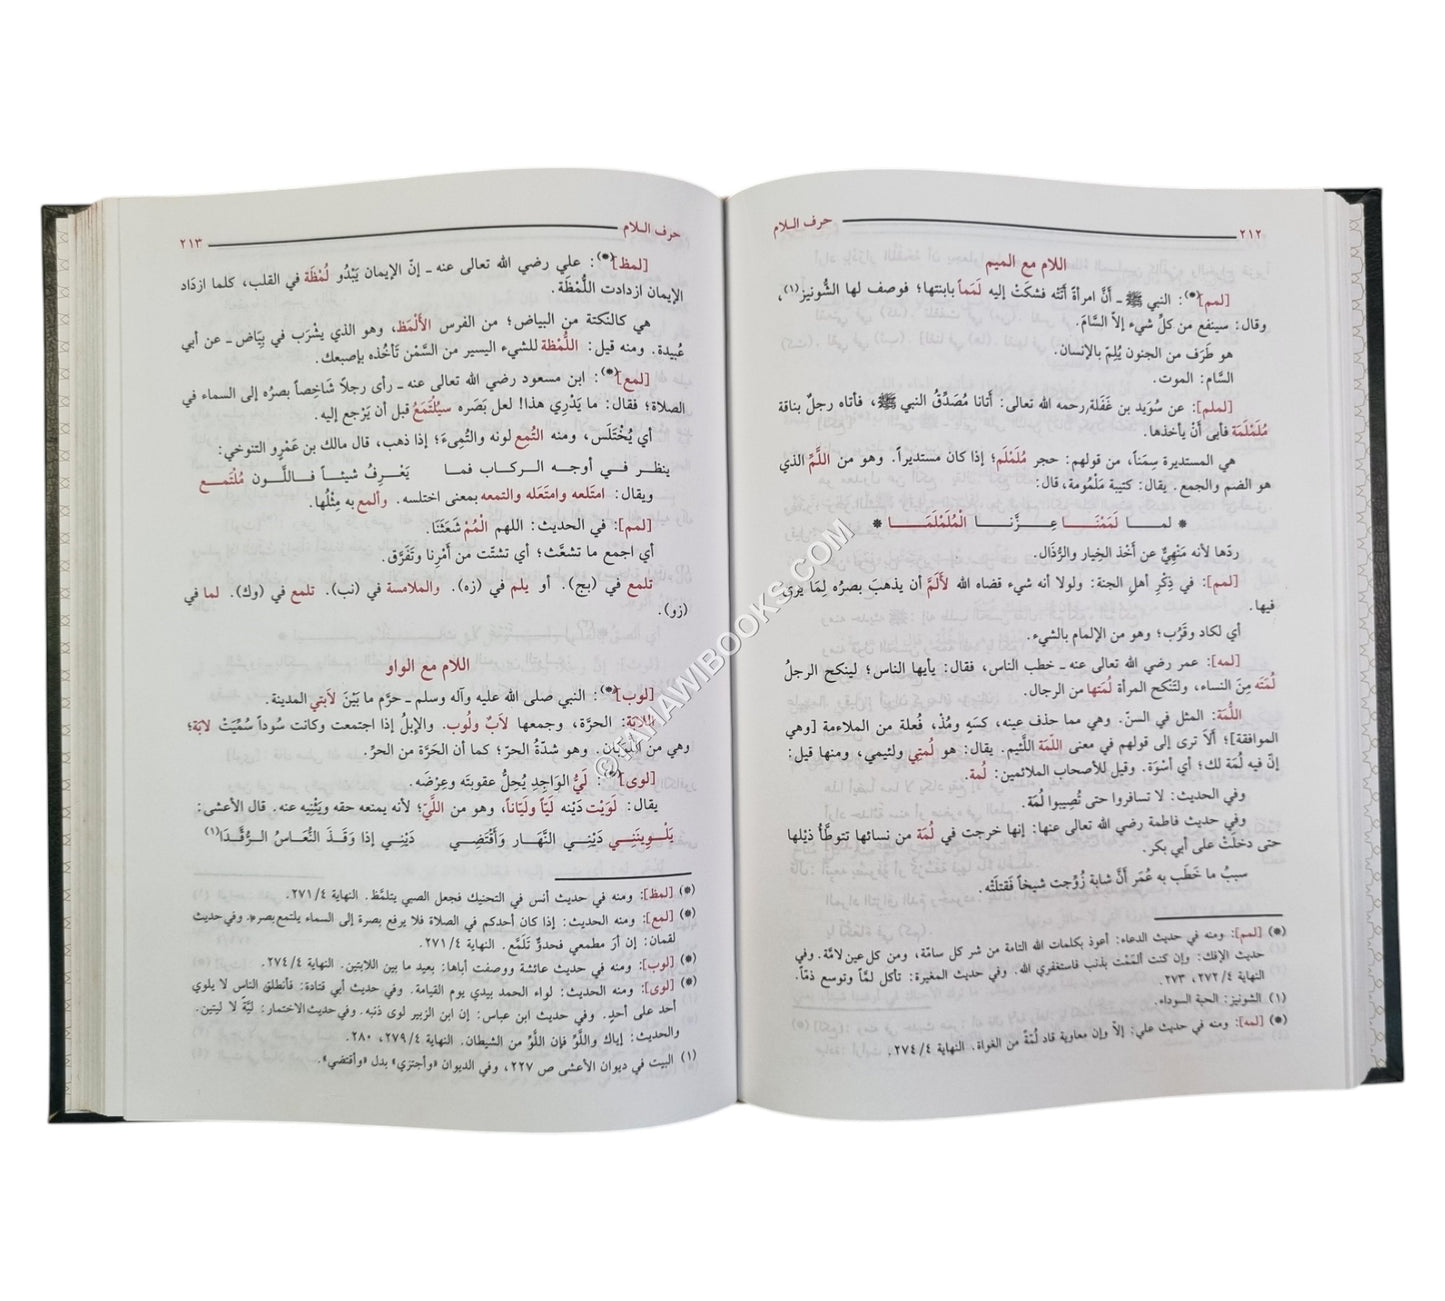 ٢١٢ حرف اللام
اللام مع الميم
[لمم](*): النبي ﷺ ـ أَنَّ امرأةً أَتَتْه فشكَتْ إليه لَمَماً بابنتها؛ فوصف لها الشُّونيز(١)،
وقال: سينفع من كلِّ شيء إلاَّ السَّامَ.
هو طَرَف من الجنون يُلِمّ بالإنسان.
السَّام: الموت.
[لملم]: عن سُوَيد بن غَفَلة رحمه الله تعالى: أتانا مُصَدِّقُ النبي ﷺ، فأتاه رجلٌ بناقة
مُلَمْلَمَة فأبى أنْ يأخذها.
هي المستديرة سِمَناً، من قولهم: حجر مُلَمْلَم؛ إذا كان مستديراً. وهو من اللَّمِّ الذي
هو الضم والجمع. يقال: كتيبة مَلْمُومة، قال:
* لمـا لَمَمْنَـا عِـزَّنـا الْمُلَمْلَمَـا *
ردّها لأنه مَنْهِيٌّ عن أخْذ الخِيار والرُّذَال.
[لمم]: في ذِكْرِ أهلِ الجنة: ولولا أنه شيء قضاه الله لأَلَمَّ أن يذهبَ بصرُه لِمَا يرى
فيها.
أي لكاد وقَرُب؛ وهو من الإلمام بالشيء.
[لمه]: عمر رضي الله تعالى عنه ـ خطب الناس، فقال: يأيها الناس؛ لينكح الرجلُ
لُمَتَه مِنَ النساء، ولتَنْكح المرأة لُمَتها من الرجال.
اللُّمَة: المثل في السنّ. وهي مما حذف عينه، كسَهٍ ومُذْ، فُعلة من الملاءمة [وهي
الموافقة]؛ أَلاَ ترى إلى قولهم في معنى اللِّمَة اللَّئِيم. يقال: هو لُمَتِي ولئيمي، ومنها قيل:
إنّ فيه لُمَة لك؛ أي أسْوَة. وقيل للأصحاب الملائمين: لُمة.
وفي الحديث: لا تسافروا حتى تُصِيبوا لُمَة.
وفي حديث فاطمة رضي الله تعالى عنها: إنها خرجت في لُمَة من نسائها تتوطَّأُ ذيْلها
حتى دخلَتْ على أبي بكر.
سببُ ما خَطَب به عُمَر أنَّ شابة زُوِّجت شيخاً فَقتلَتْه.
(*) [لمم]: ومنه في حديث الدعاء: أعوذ بكلمات الله التامة من شر كل سامّة، ومن كل عين لامّة. وفي
حديث الإفك: وإن كنت ألمَمْت بذنب فاستغفري الله. وفي حديث المغيرة: تأكل لمَّا وتوسع ذمّا.
النهاية ٤/ ٢٧٢، ٢٧٣.
(١) الشونيز: الحبة السوداء.
(*) [لمه]: ومنه في حديث علي: إلاَّ وإن معاوية قاد لُمّةً من الغواة. النهاية ٤/ ٢٧٤.
حرف اللام ٢١٣
[لمظ](*): علي رضي الله تعالى عنه ـ إنّ الإيمان يَبْدُو لُمْظَة في القلب، كلما ازدَاد
الإيمان ازدادت اللُّمْظَة.
هي كالنّكتة من البياض؛ من الفرس الأَلْمَظ، وهو الذي يشْرَب في بيَاض ـ عن أبي
عُبيدة. ومنه قيل: اللُّمْظة للشيء اليسير من السَّمْن تأخُذه بإصبعك.
[لمع](*): ابن مسعود رضي الله تعالى عنه ـ رأى رجلاً شَاخِصاً بصرُه إلى السماء في
الصلاة؛ فقال: ما يَدْرِي هذا! لعل بَصَره سيُلتَمَعُ قبل أن يَرْجع إليه.
أي يُخْتَلَس، ومنه التُمِع لونه والتُمِىء؛ إذا ذهب، قال مالك بن عَمْرٍو التنوخي:
ينظر في أوجه الركاب فما يَعْرِفُ شيئاً فاللَّون مُلْتَمِع
ويقال: امتَلعه وامتَعَله والتمعه بمعنى اختلسه. وألمع به مِثْلُها.
[لمم]: في الحديث: اللهم الْمُمْ شَعَثَنَا.
أي اجمع ما تشعَّث؛ أي تشتّت من أَمْرِنا وتَفَرَّق.
تلمع في (بج). أو يلم في (زه). والملامسة في (نب). تلمع في (وك). لما في
(زو).
اللام مع الواو
[لوب](*): النبي صلى الله عليه وآله وسلم ـ حرَّم ما بَيْنَ لابَتي المدينة.
اللابَة: الحرَّة، وجمعها لاَبٌ ولُوب. والإبلُ إذا اجتمعت وكانت سُوداً سُمِّيَتْ لابَة؛
وهي من اللُّوبَان. وهو شدّةُ الحرّ؛ كما أن الحَرَّة من الحرِّ.
[لوى](*): لَيُّ الوَاجِدِ يُحِلُّ عقوبتَه وعِرْضَه.
يقال: لَوَيْت دَيْنه لَيّاً ولَيَّاناً، وهو من اللَّيّ؛ لأنه يمنعه حقه ويَثْنِيه عنه. قال الأعشى:
يَلْوِينَنِي دَيْنِي النَّهَار وَأَقْتَضِي دَيْنِي إذا وَقَذَ النُّعَاسُ الرُّقَّدَا(١)
(*) [لمظ]: ومنه في حديث أنس في التحنيك فجعل الصبي يتلمَّظ. النهاية ٤/ ٢٧١.
(*) [لمع]: ومنه الحديث: إذا كان أحدكم في الصلاة فلا يرفع بصرة إلى السماء يلتمع بصره. وفي حديث
لقمان: إن أرَ مطمعي فحدوٌّ تَلَمَّع. النهاية ٤/ ٢٧١.
(*) [لوب]: ومنه في حديث عائشة ووصفت أباها: بعيد ما بين اللابتين. النهاية ٤/ ٢٧٤.
(*) [لوى]: ومنه الحديث: لواء الحمد بيدي يوم القيامة. وفي حديث أبي قتادة: فأنطلق الناس لا يلوي
أحد على أحدٍ. وفي حديث ابن عباس: إن ابن الزبير لوى ذنبه. وفي حديث الاختمار: ليَّةً لا ليتين.
والحديث: إياك واللَّوَّ فإن اللَّوَّ من الشيطان. النهاية ٤/ ٢٧٩، ٢٨٠.
(١) البيت في ديوان الأعشى ص ٢٢٧، وفي الديوان «وأجتزي» بدل «وأقتضي».
©TAHAWIBOOKS.COM